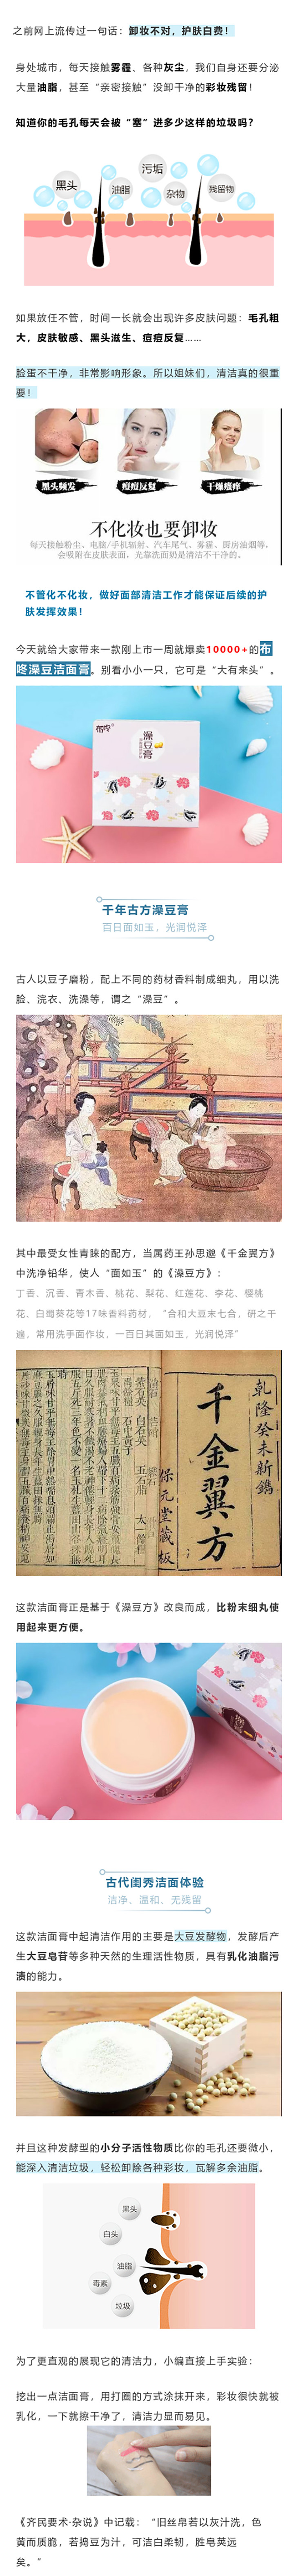 之前网上流传过一句话：卸妆不对，护肤白费！
身处城市，每天接触雾霾、各种灰尘，我们自身还要分泌
大量油脂，甚至“亲密接触”没卸干净的彩妆残留！
知道你的毛孔每天会被“塞”进多少这样的垃圾吗？
污垢
黑头
油脂
杂物
残留物
如果放任不管，时间一长就会出现许多皮肤问题：毛孔粗
大，皮肤敏感、黑头滋生、痘痘反复……
脸蛋不干净，非常影响形象。所以姐妹们，清洁真的很重
要！
黑头频发
痘痘反复
干燥瘙痒
不化妆也要卸妆
每天接触粉尘、电脑/手机辐射、汽车尾气、雾霾、厨房油烟等，
会吸附在皮肤表面，光靠洗面奶是清洁不干净的。
不管化不化妆，做好面部清洁工作才能保证后续的护
肤发挥效果！
今天就给大家带来一款刚上市一周就爆卖10000+的布
咚澡豆洁面膏。别看小小一只，它可是“大有来头”。
布咚
澡豆膏
千年古方澡豆膏
百日面如玉，光润悦泽
古人以豆子磨粉，配上不同的药材香料制成细丸，用以洗
脸、浣衣、洗澡等，谓之“澡豆”。
其中最受女性青睐的配方，当属药王孙思邈《千金翼方》
中洗净铅华，使人“面如玉”的《澡豆方》：
丁香、沉香、青木香、桃花、梨花、红莲花、李花、樱桃
花、白蜀葵花等17味香料药材，“合和大豆末七合，研之千
遍，常用洗手面作妆，一百日其面如玉，光润悦泽”
乾隆癸未新鐫
千金翼方
保元堂藏板
这款洁面膏正是基于《澡豆方》改良而成，比粉末细丸使
用起来更方便。
古代闺秀洁面体验
洁净、温和、无残留
这款洁面膏中起清洁作用的主要是大豆发酵物，发酵后产
生大豆皂苷等多种天然的生理活性物质，具有乳化油脂污
渍的能力。
并且这种发酵型的小分子活性物质比你的毛孔还要微小，
能深入清洁垃圾，轻松卸除各种彩妆，瓦解多余油脂。
黑头
白头
油脂
毒素
垃圾
为了更直观的展现它的清洁力，小编直接上手实验：
挖出一点洁面膏，用打圈的方式涂抹开来，彩妆很快就被
乳化，一下就擦干净了，清洁力显而易见。
《齐民要术·杂说》中记载：“旧丝帛若以灰汁洗，色
黄而质脆，若捣豆为汁，可洁白柔韧，胜皂荚远
矣。”